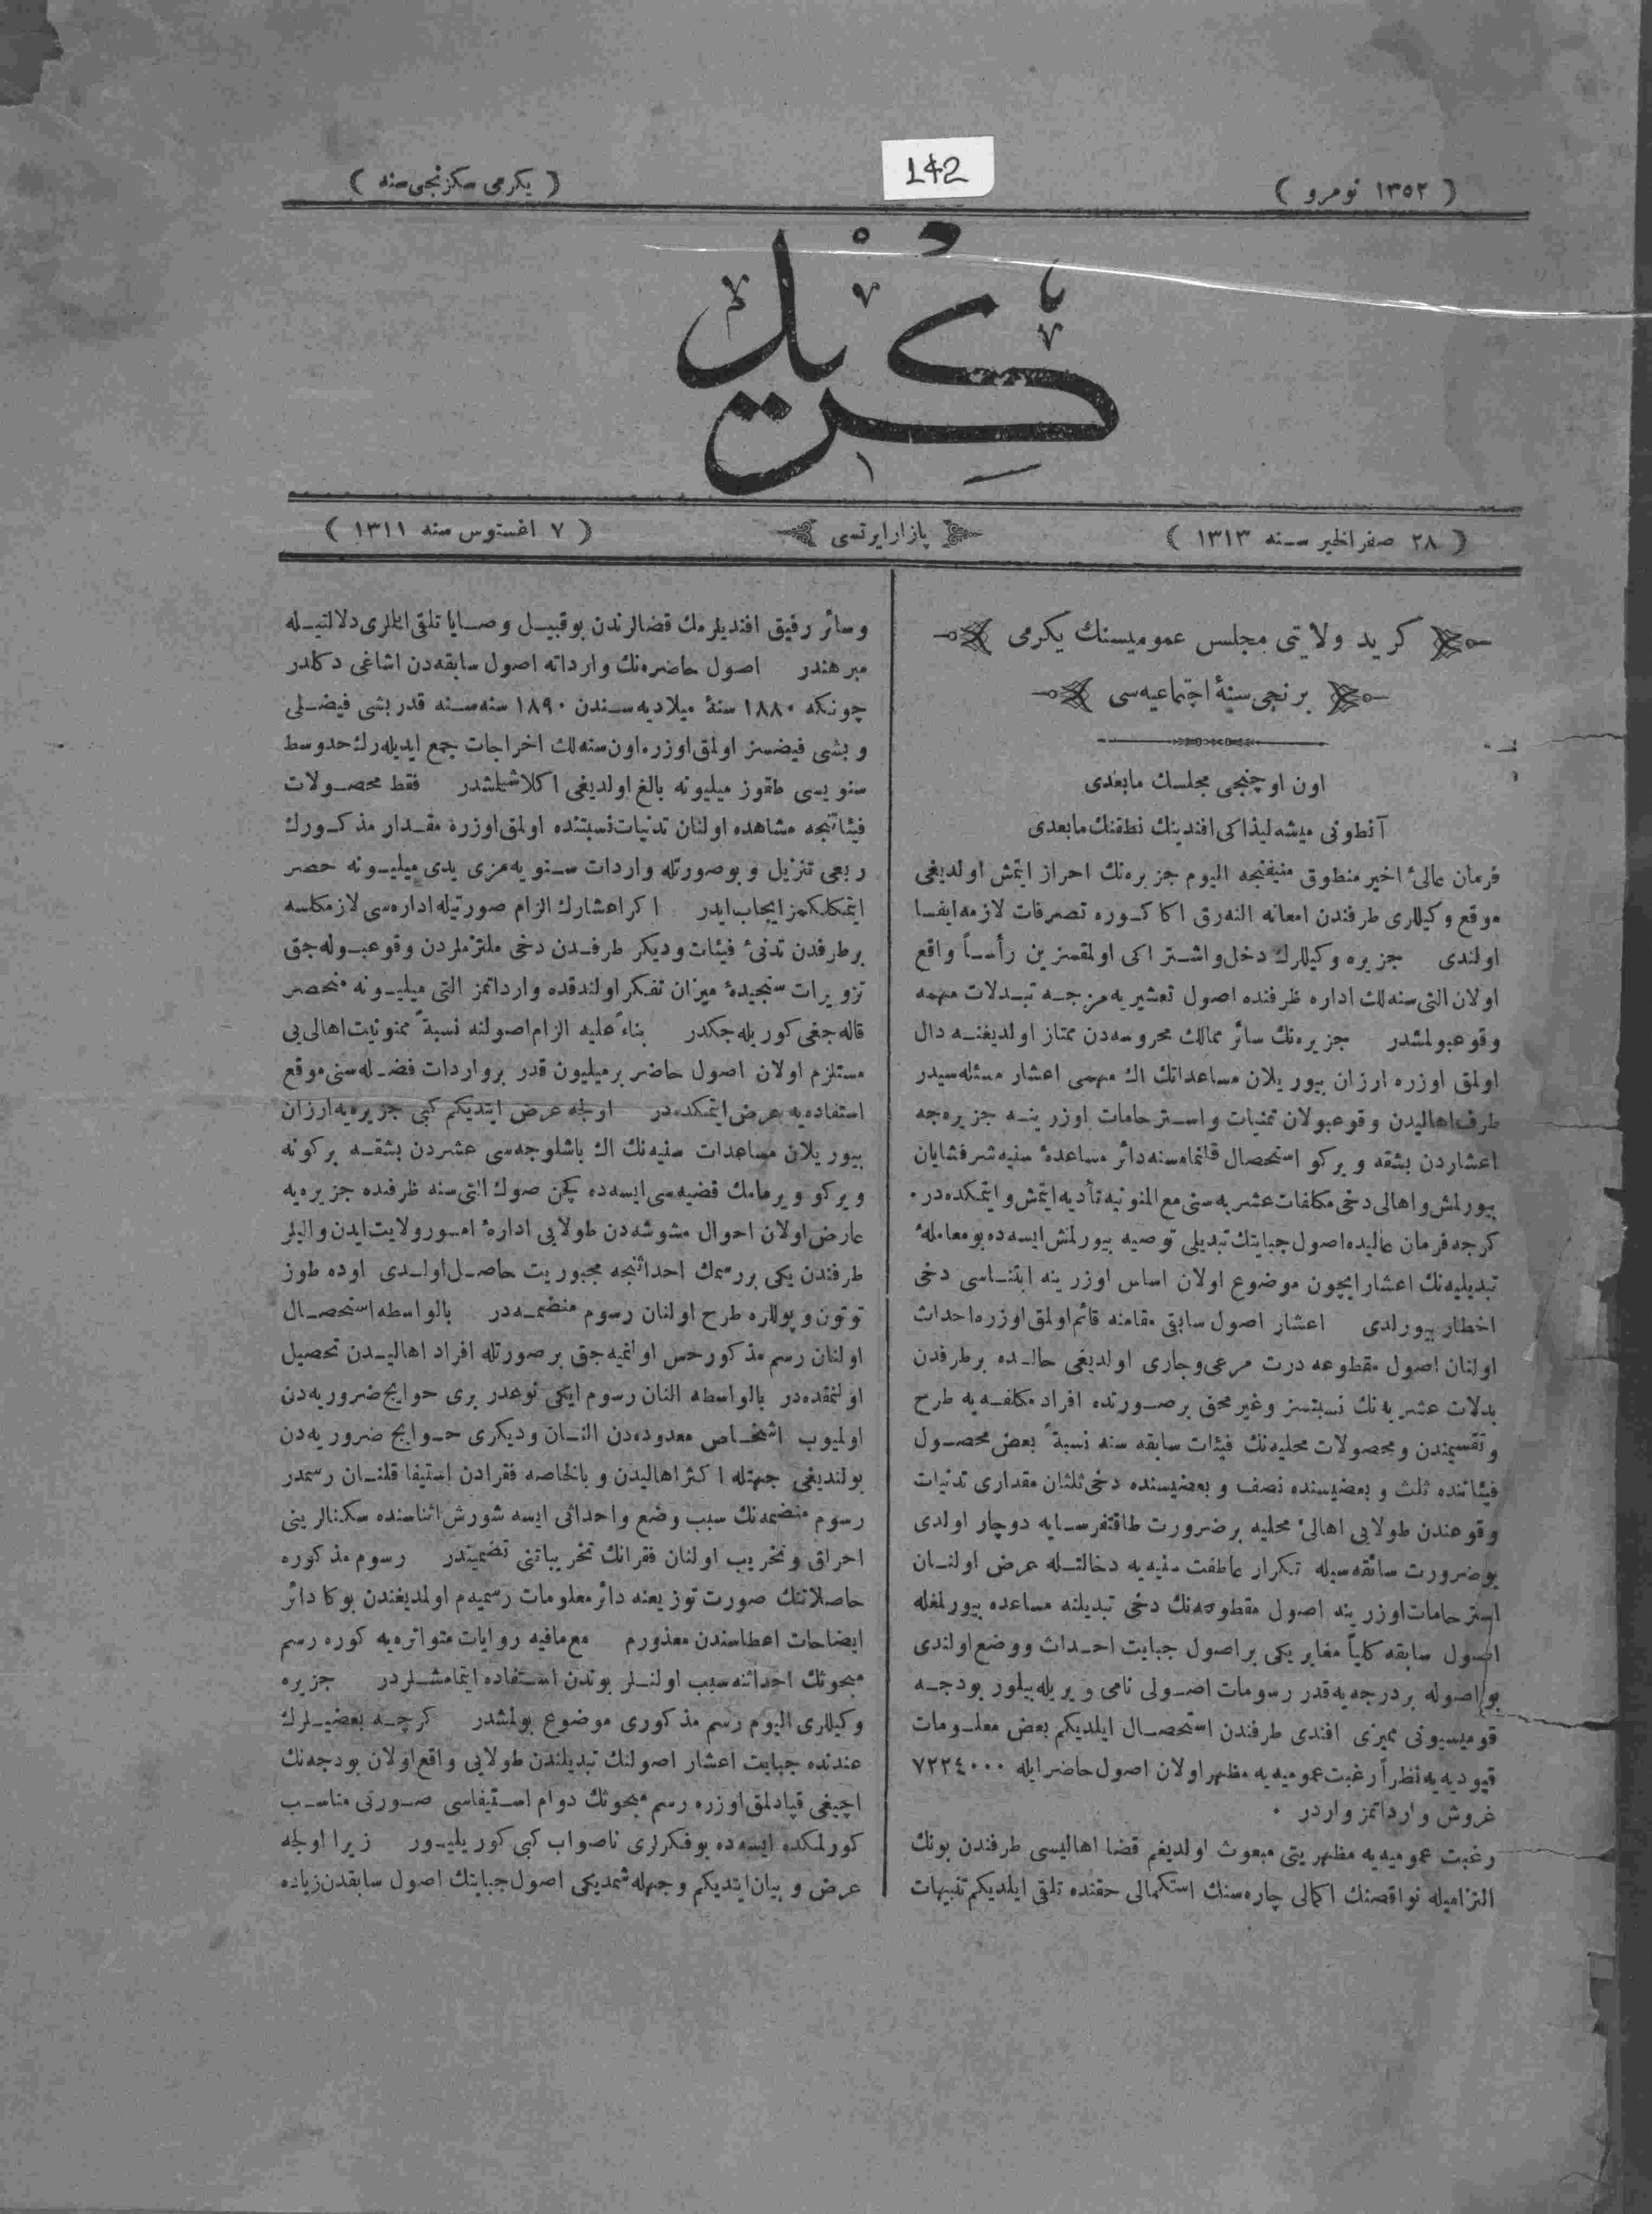 ( ١٣٥٢ نومرو )
142
( يكرمى سكزنجى سنه )
كريد
( ٢٨ صفر الخير سنه ١٣١٣ )
پازار ايرتسى
( ٧ اغستوس سنه ١٣١١ )
كريد ولايتى مجلس عموميسنك يكرمى
برنجى سنهٔ اجتماعيه‌سى
اون اوچنجى مجلسك مابعدى
آنطونى ميشه ليذاكى افندينك نطقنك مابعدى
فرمان عالئ اخير منطوق منيفنجه اليوم جزيره‌نك احراز ايتمش اولديغى
موقع وكيللرى طرفندن امعانه النه‌رق اكا كوره تصرفات لازمه ايفا
اولندى جزيره وكيللرك دخل واشتراكى اولمقسزين رأساً واقع
اولان التى سنه‌لك اداره ظرفنده اصول تعشيريه‌مزجه تبدلات مهمه
وقوعبولمشدر جزيره‌نك سائر ممالك محروسه‌دن ممتاز اولديغنه دال
اولمق اوزره ارزان بيوريلان مساعداتك اك مهمى اعشار مسئله‌سيدر
طرف اهاليدن وقوعبولان تمنيات واسترحامات اوزرينه جزيره‌جه
اعشاردن بشقه ويركو استحصال قلنمامسنه دائر مساعدهٔ سنيه شرفشايان
بيورلمش واهالى دخى مكلفات عشريه‌سنى مع الممنونيه تأديه ايتمش وايتمكده‌در .
كرجه فرمان عاليده اصول جبايتك تبديلى توصيه بيورلمش ايسه‌ده بو معاملهٔ
تبديليه‌نك اعشار ايچون موضوع اولان اساس اوزرينه ابتناسى دخى
اخطار بيورلدى اعشار اصول سابقى مقامنه قائم اولمق اوزره احداث
اولنان اصول مقطوعه درت مرعى وجارى اولديغى حالده برطرفدن
بدلات عشريه‌نك نسبتسز وغير محق برصورتده افراد مكلفه‌يه طرح
وتقسيمندن ومحصولات محليه‌نك فيئات سابقه سنه نسبةً بعض محصول
فيئاتنده ثلث و بعضيسنده نصف و بعضيسنده دخى ثلثان مقدارى تدنيات
وقوعندن طولايى اهالئ محليه برضرورت طاقتفرسايه دوچار اولدى
بوضرورت سائقه‌سيله تكرار عاطفت سنيه‌يه دخالتله عرض اولنان
استرحامات اوزرينه اصول مقطوعه‌نك دخى تبديلنه مساعده بيورلمغله
اصول سابقه كلياً مغاير يكى براصول جبايت احداث ووضع اولندى
بو اصوله بردرجه‌يه قدر رسومات اصولى نامى ويريله‌بيلور بودجه
قوميسيونى مميزى افندى طرفندن استحصال ايلديكم بعض معلومات
قيوديه‌يه نظراً رغبت عموميه‌يه مظهر اولان اصول حاضر ايله ٧٢٢٤٠٠٠
غروش وارداتمز واردر .
رغبت عموميه‌يه مظهريتى مبعوث اولديغم قضا اهاليسى طرفندن بونك
التزاميله نواقصنك اكمالى چاره‌سنك استكمالى حقنده تلقى ايلديكم تنبيهات
وسائر رفيق افنديلرمك قضالرندن بوقبيل وصايا تلقى ايتملرى دلالتيله
مبرهندر اصول حاضره‌نك وارداته اصول سابقه‌دن اشاغى دكلدر
چونكه ١٨٨٠ سنهٔ ميلاديه‌سندن ١٨٩٠ سنه‌سنه قدر بشى فيضلى
وبشى فيضسز اولمق اوزره اون سنه‌لك اخراجات جمع ايديله‌رك حدوسط
سنويسى طقوز ميليونه بالغ اولديغى اكلاشلمشدر فقط محصولات
فيئاتنجه مشاهده اولنان تدنيات نسبتنده اولمق اوزره مقدار مذكورك
ربعى تنزيل و بوصورتله واردات سنويه‌مزى يدى ميليونه حصر
ايتمكلكمز ايجاب ايدر اكر اعشارك الزام صورتيله اداره‌سى لازمكلسه
برطرفدن تدنئ فيئات وديكر طرفدن دخى ملتزملردن وقوعبوله‌جق
تزويرات سنجيدهٔ ميزان تفكر اولندقده وارداتمز التى ميليونه منحصر
قاله‌جغى كوريله‌جكدر بناءً عليه الزام اصولنه نسبةً ممنونيت اهالى‌يى
مستلزم اولان اصول حاضر برميليون قدر بر واردات فضله‌سنى موقع
استفاده‌يه عرض ايتمكده‌در اولجه عرض ايتديكم كبى جزيره‌يه ارزان
بيوريلان مساعدات سنيه‌نك اك باشلوجه‌سى عشردن بشقه بركونه
ويركو ويرمامك قضيه‌سى ايسه‌ده كچن صوك التى سنه ظرفنده جزيره‌يه
عارض اولان احوال مشوشه‌دن طولايى ادارهٔ امور ولايت ايدن واليلر
طرفندن يكى بررسمك احداثنجه مجبوريت حاصل اولدى اوده طوز
توتون و پوللره طرح اولنان رسوم منضمه‌در بالواسطه استحصال
اولنان رسم مذكور حس اولنميه‌جق برصورتله افراد اهاليدن تحصيل
اولنمقده‌در بالواسطه النان رسوم ايكى نوعدر برى حوايج ضروريه‌دن
اولميوب اشخاص معدوده‌دن النان وديكرى حوايج ضروريه‌دن
بولنديغى جهتله اكثر اهاليدن و بالخاصه فقرادن استيفا قلنان رسمدر
رسوم منضمه‌نك سبب وضع واحداثى ايسه شورش اثناسنده سكنالرينى
احراق وتخريب اولنان فقرانك تخريباتنى تضميندر رسوم مذكوره
حاصلاتنك صورت توزيعنه دائر معلومات رسميه‌م اولمديغندن بوكا دائر
ايضاحات اعطاسندن معذورم مع‌مافيه روايات متواتره‌يه كوره رسم
مبحوثك احداثنه سبب اولنلر بوندن استفاده ايتمامشلردر جزيره
وكيللرى اليوم رسم مذكورى موضوع بولمشدر كرچه بعضيلرك
عندنده جبايت اعشار اصولنك تبديلندن طولايى واقع اولان بودجه‌نك
اچيغى قپادلمق اوزره رسم مبحوثك دوام استيفاسى صورتى مناسب
كورلمكده ايسه‌ده بوفكرلرى ناصواب كبى كوريليور زيرا اولجه
عرض و بيان ايتديكم وجهله شمديكى اصول جبايتك اصول سابقدن زياده